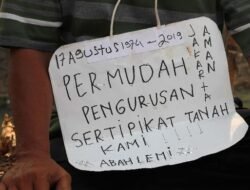 17 AGUSTUS 1974 - 2019
PERMUDAH
PENGURUSAN
SERTIPIKAT TANAH
KAMI
ABAH LEMI
JAKARTA
AMAN